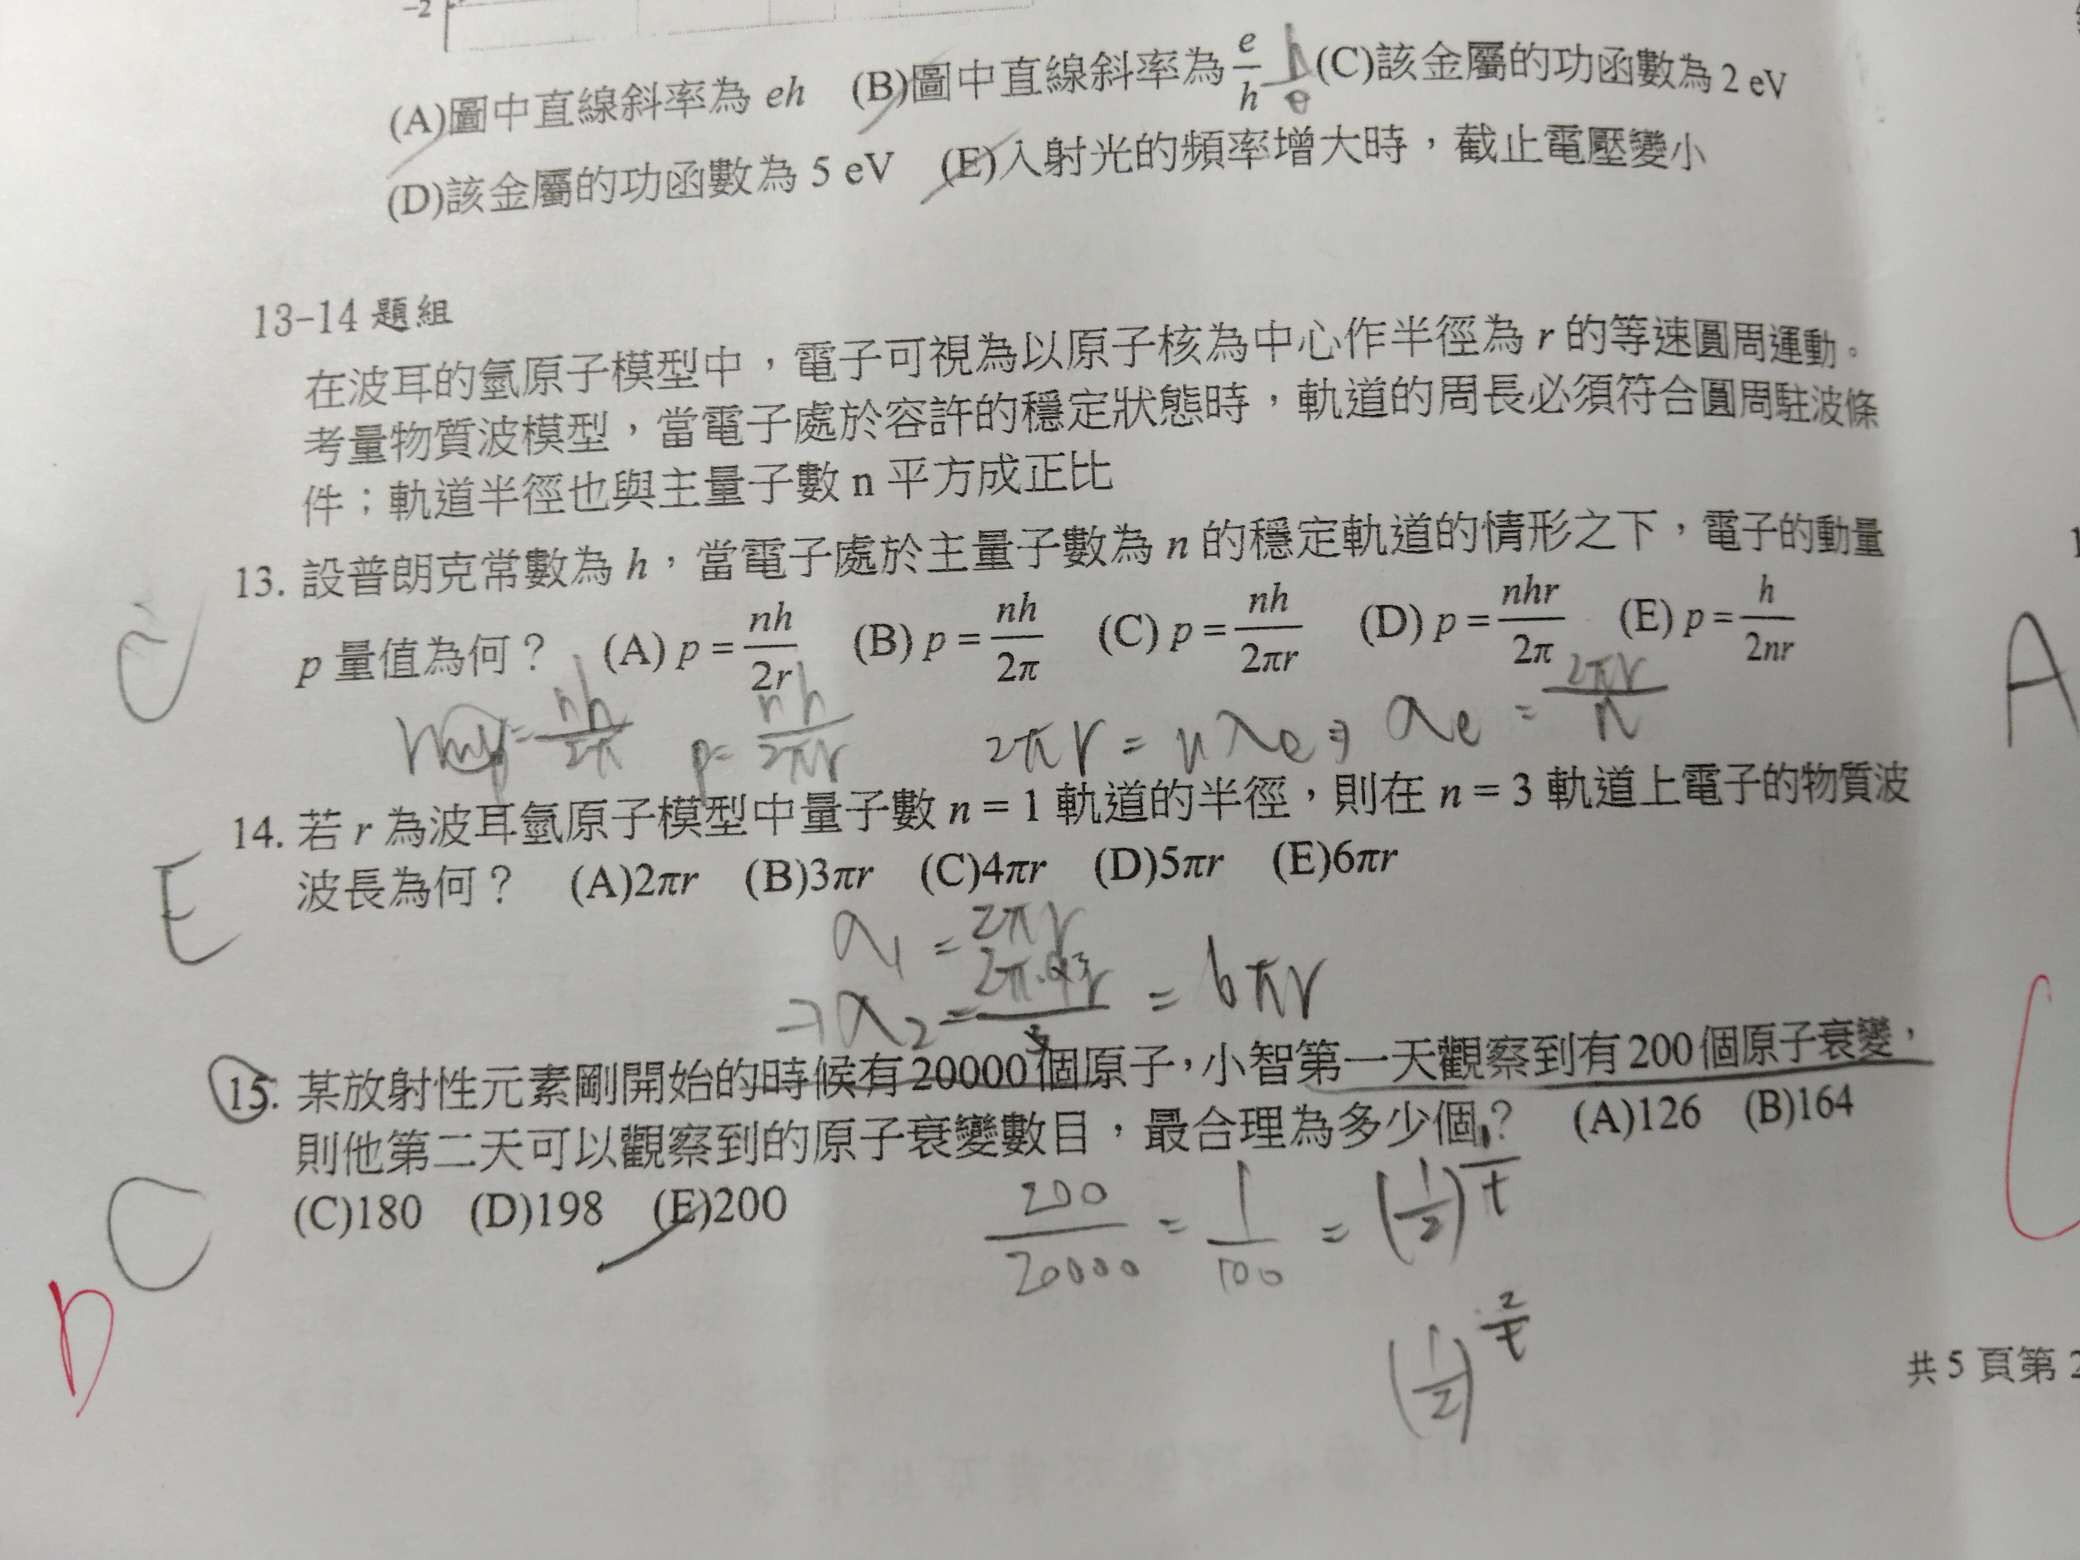 -2
(A)圖中直線斜率為 eh (B)圖中直線斜率為 e/h h/e (C)該金屬的功函數為 2 eV
(D)該金屬的功函數為 5 eV (E)入射光的頻率增大時，截止電壓變小
13-14 題組
在波耳的氫原子模型中，電子可視為以原子核為中心作半徑為 r 的等速圓周運動。
考量物質波模型，當電子處於容許的穩定狀態時，軌道的周長必須符合圓周駐波條
件；軌道半徑也與主量子數 n 平方成正比
13. 設普朗克常數為 h，當電子處於主量子數為 n 的穩定軌道的情形之下，電子的動量
p 量值為何？ (A) p = nh/2r (B) p = nh/2π (C) p = nh/2πr (D) p = nhr/2π (E) p = h/2nr
C
p = nh/2πr 2πr = nλe ⇒ λe = 2πr/n
A
14. 若 r 為波耳氫原子模型中量子數 n = 1 軌道的半徑，則在 n = 3 軌道上電子的物質波
波長為何？ (A)2πr (B)3πr (C)4πr (D)5πr (E)6πr
E
λ1 = 2πr
= 6πr
15. 某放射性元素剛開始的時候有 20000 個原子，小智第一天觀察到有 200 個原子衰變，
則他第二天可以觀察到的原子衰變數目，最合理為多少個？ (A)126 (B)164
(C)180 (D)198 (E)200
C
D
200/20000 = 1/100 = (1/2)^(1/t)
(1/2)^(2/t)
共 5 頁第 2